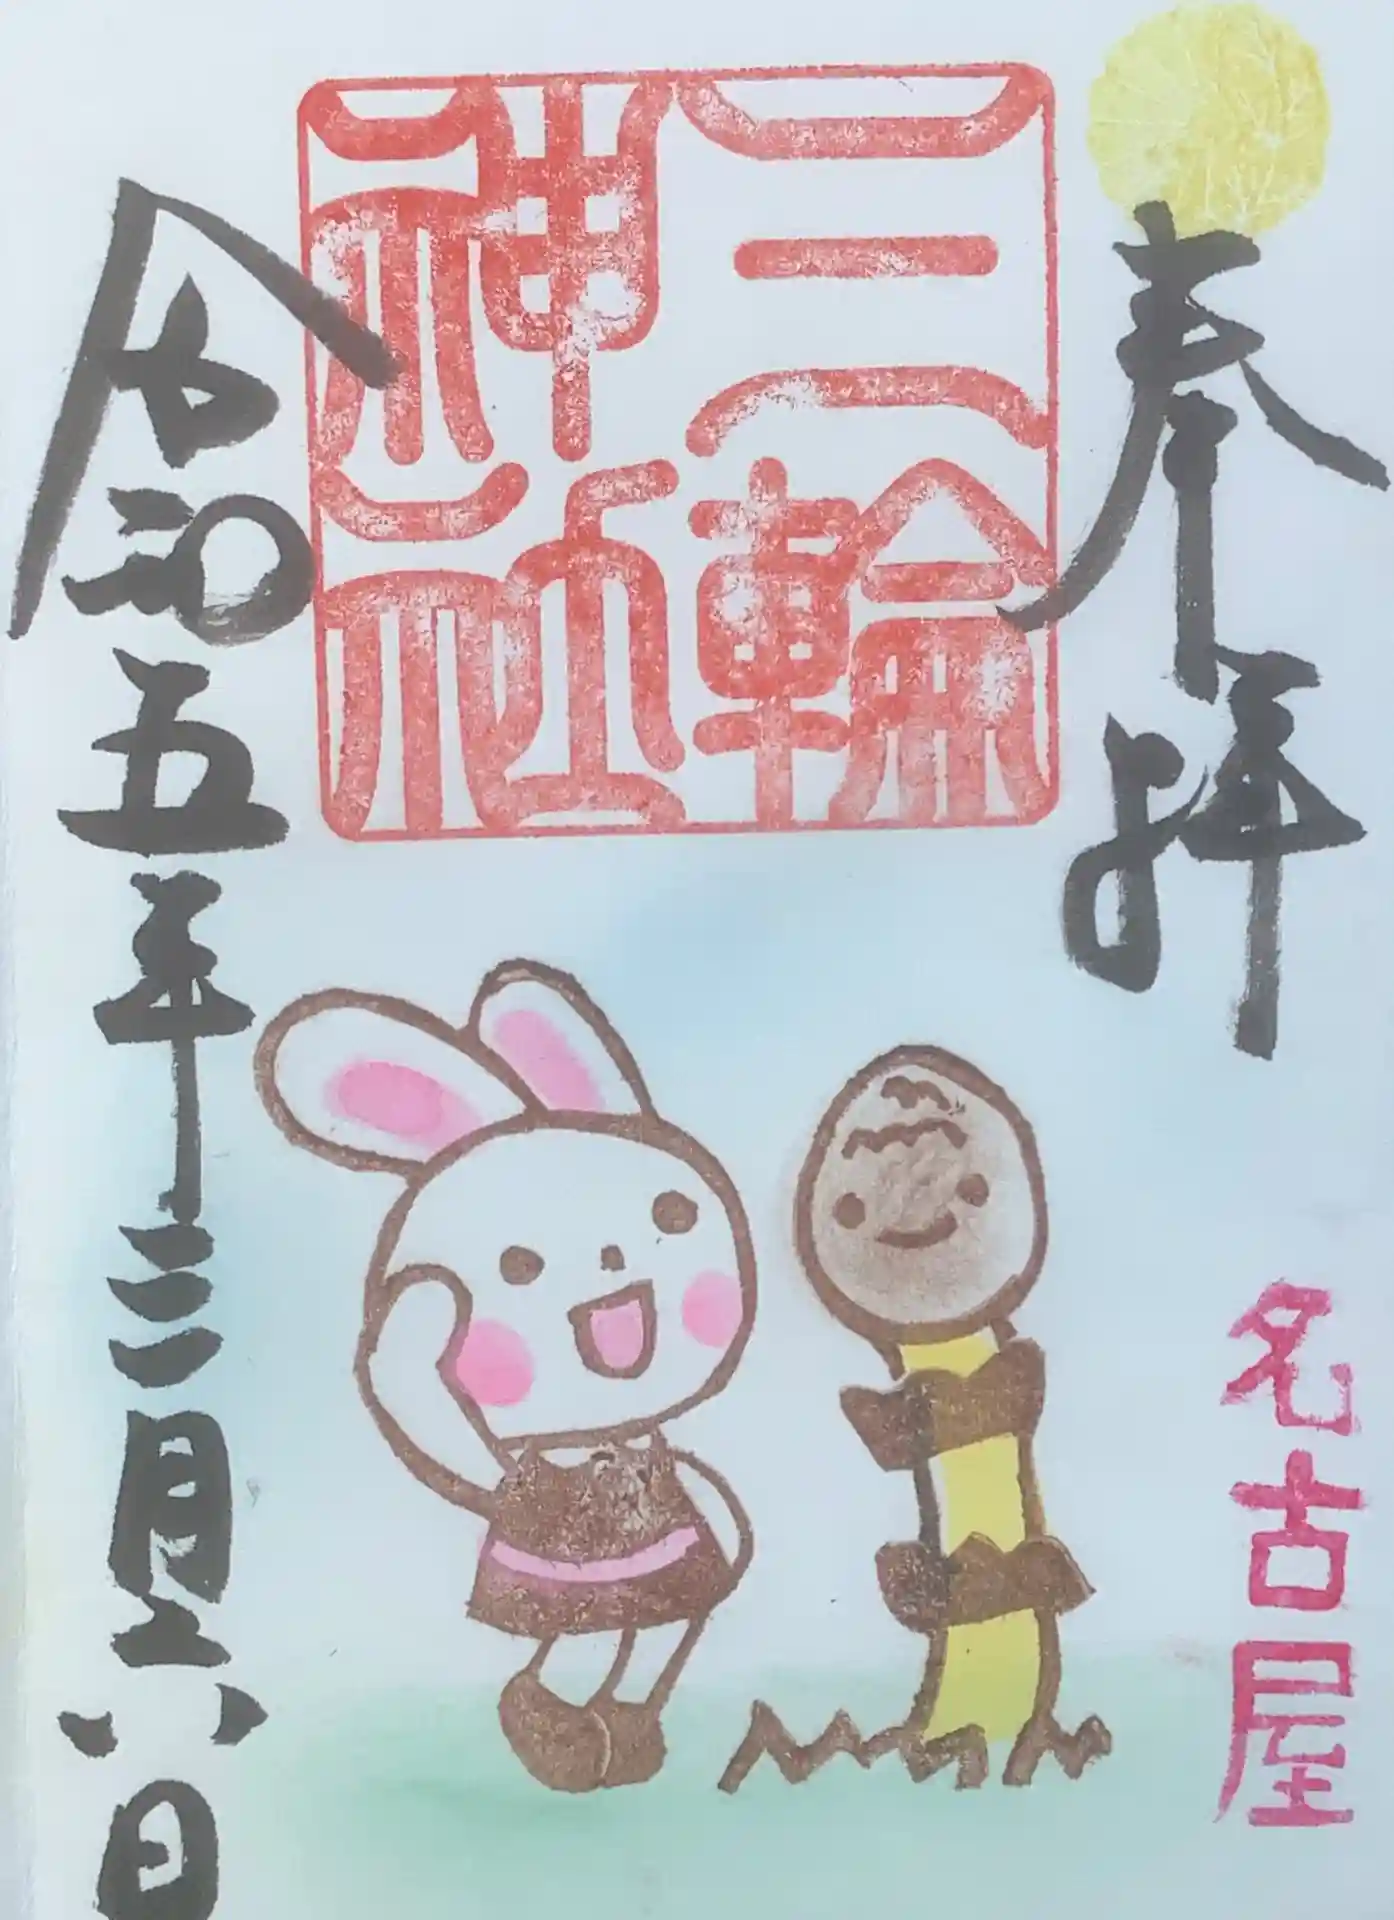 奉拝
三輪
神社
名古屋
令和五年三月六日